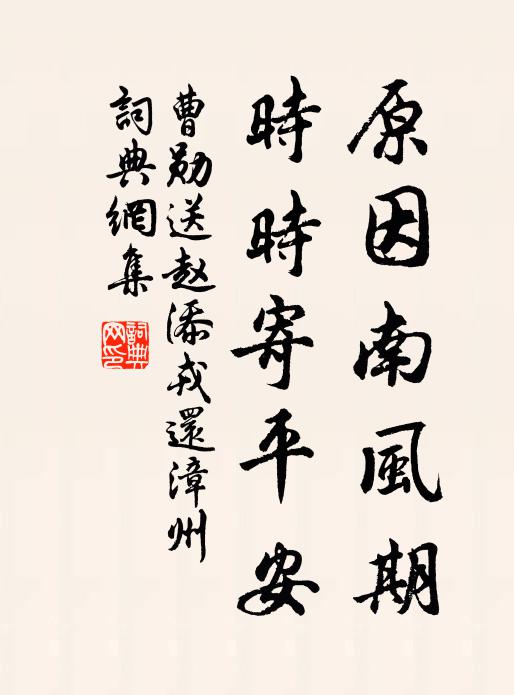 原因南風期
時時寄平安
曹勛送趙添戎還漳州
詞典網集
詞典
网印